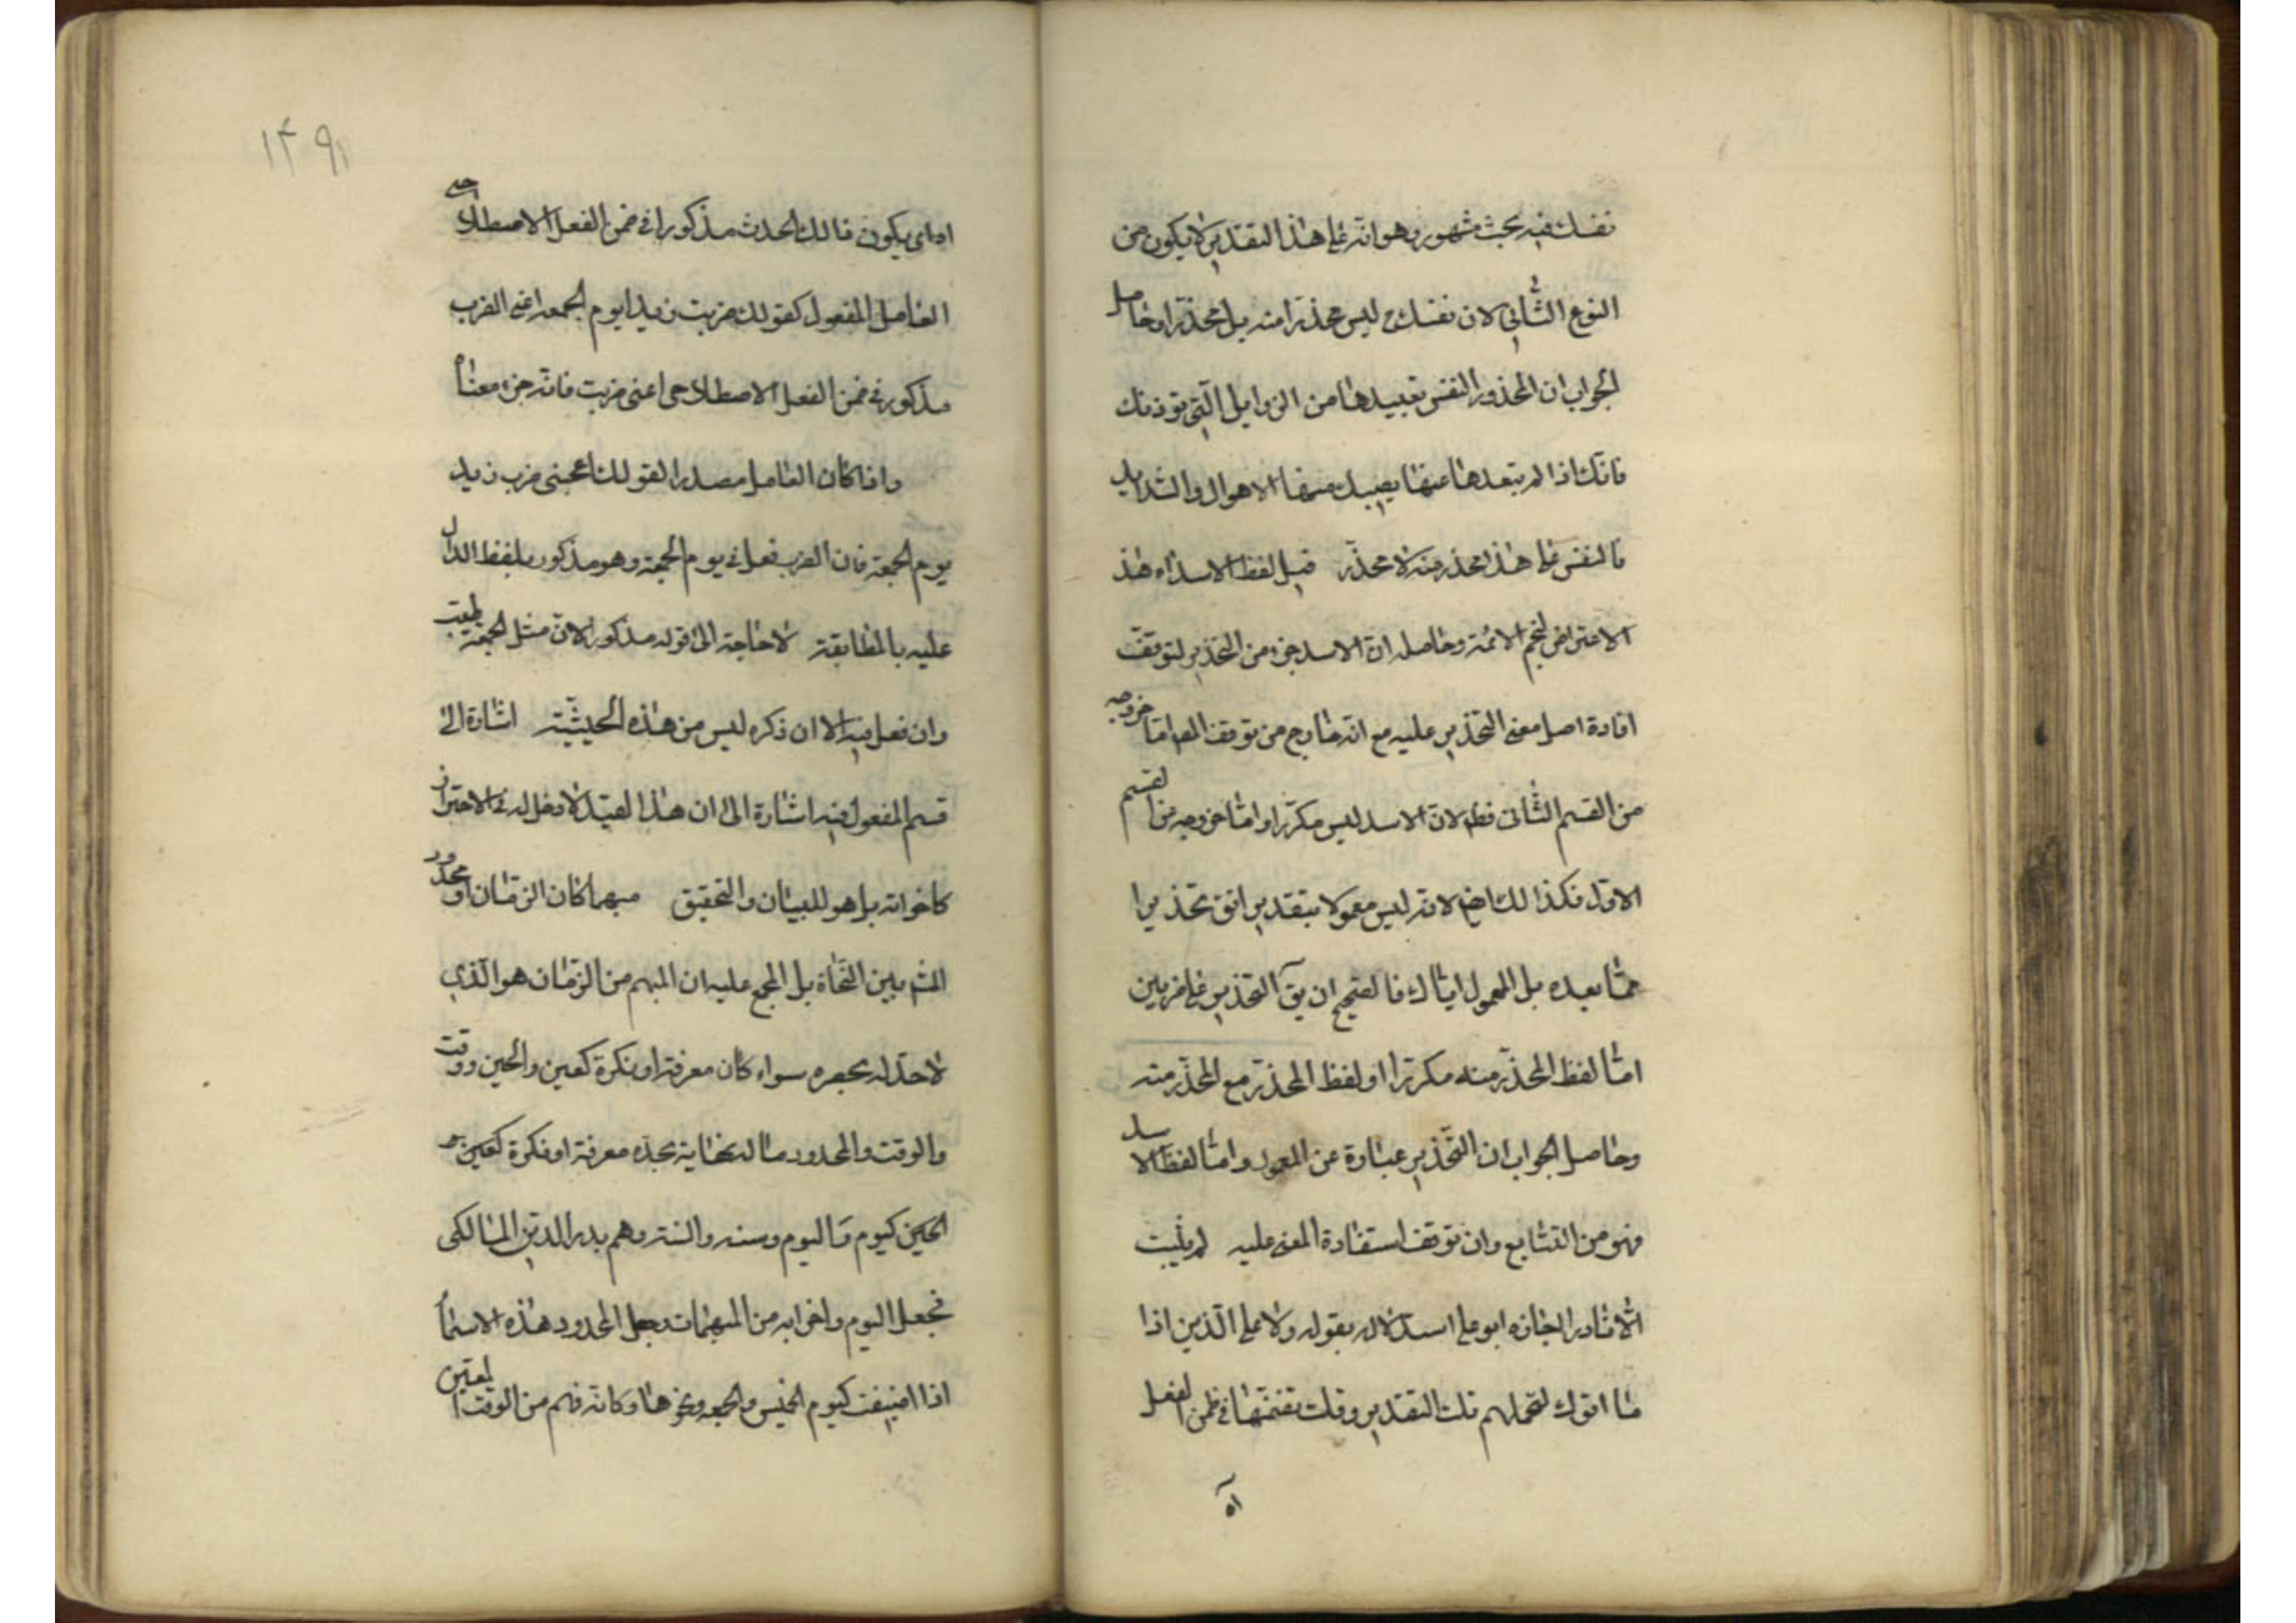 نفسك فيه بحث مشهور وهو انه على هذا التقدير لا يكون من
النوع الثاني لان نفسك ليس محذرا منه بل محذرا وحاصل
الجواب ان المحذور النفس تعبيدها من الزوايل التي توذيك
فانك اذا لم تبعدها عنها يصيبك منها الاهوال والشدايد
فالنفس على هذا محذر منه لا محذر قيل لفظ الاسد اه هذا
الاعتراض لنجم الائمة وحاصله ان الاسد جزء من التحذير لتوقف
افادة اصل معنى التحذير عليه مع انه خارج من اما خروجه
من القسم الثاني فظ لان الاسد ليس مكررا واما خروجه من القسم
الاول فكذلك ايض لانه ليس معمولا بتقدير اتق تحذيرا
مما بعده بل المعمول اياك فالصحيح ان يق التحذير على ضربين
اما لفظ المحذر منه مكررا او لفظ المحذر مع المحذر منه
وحاصل الجواب ان التحذير عبارة عن المعمول واما لفظ الاسد
فهو من التتابع وان توقف استفادة المعنى عليه لم يثبت
الا نادرا اجازه ابو علي استدلالا بقوله ولا على الذين اذا
ما اتوك لتحملهم تلك التقدير وقلت في ضمن الفعل
اه
۱۴۹
اه اي يكون ذالك الحدث مذكورا في ضمن الفعل الاصطلاحي
العامل المفعول كقولك ضربت زيدا يوم الجمعه اعني الضرب
مذكور في ضمن الفعل الاصطلاحى اعنى ضربت فانه جزء معناه
واذا كان العامل مصدرا لقولك اعجبنى ضرب زيد
يوم الجمعة فان الضرب فعل في يوم الجمعة وهو مذكور بلفظ الدال
عليه بالمطابقة لاحاجة الى قوله مذكور لان مثل الجمعة طيب
وان فعل فيه الا ان ذكره ليس من هذه الحيثية اشارة الى
قسم المفعول فيه اشارة الى ان هذا القيد لا دخل له في الاحتراز
كاخواته بل هو للبيان والتحقيق مبهما كان الزمان او محدود
المش بين النحاة بل المجمع عليه ان المبهم من الزمان هو الذي
لاحد له يحصره سواء كان معرفة او نكرة كحين والحين ووقت
والوقت والمحدود ما له نهاية تحده معرفة او نكرة
كيوم واليوم وسنه والسنة وهم بدر الدين المالكى
فجعل اليوم واخواته من المبهمات وجعل المحدود هذه الاسماء
اذا اضيفت كيوم الخميس والجمعه ونحوها وكانه فهم من الوقت المعين